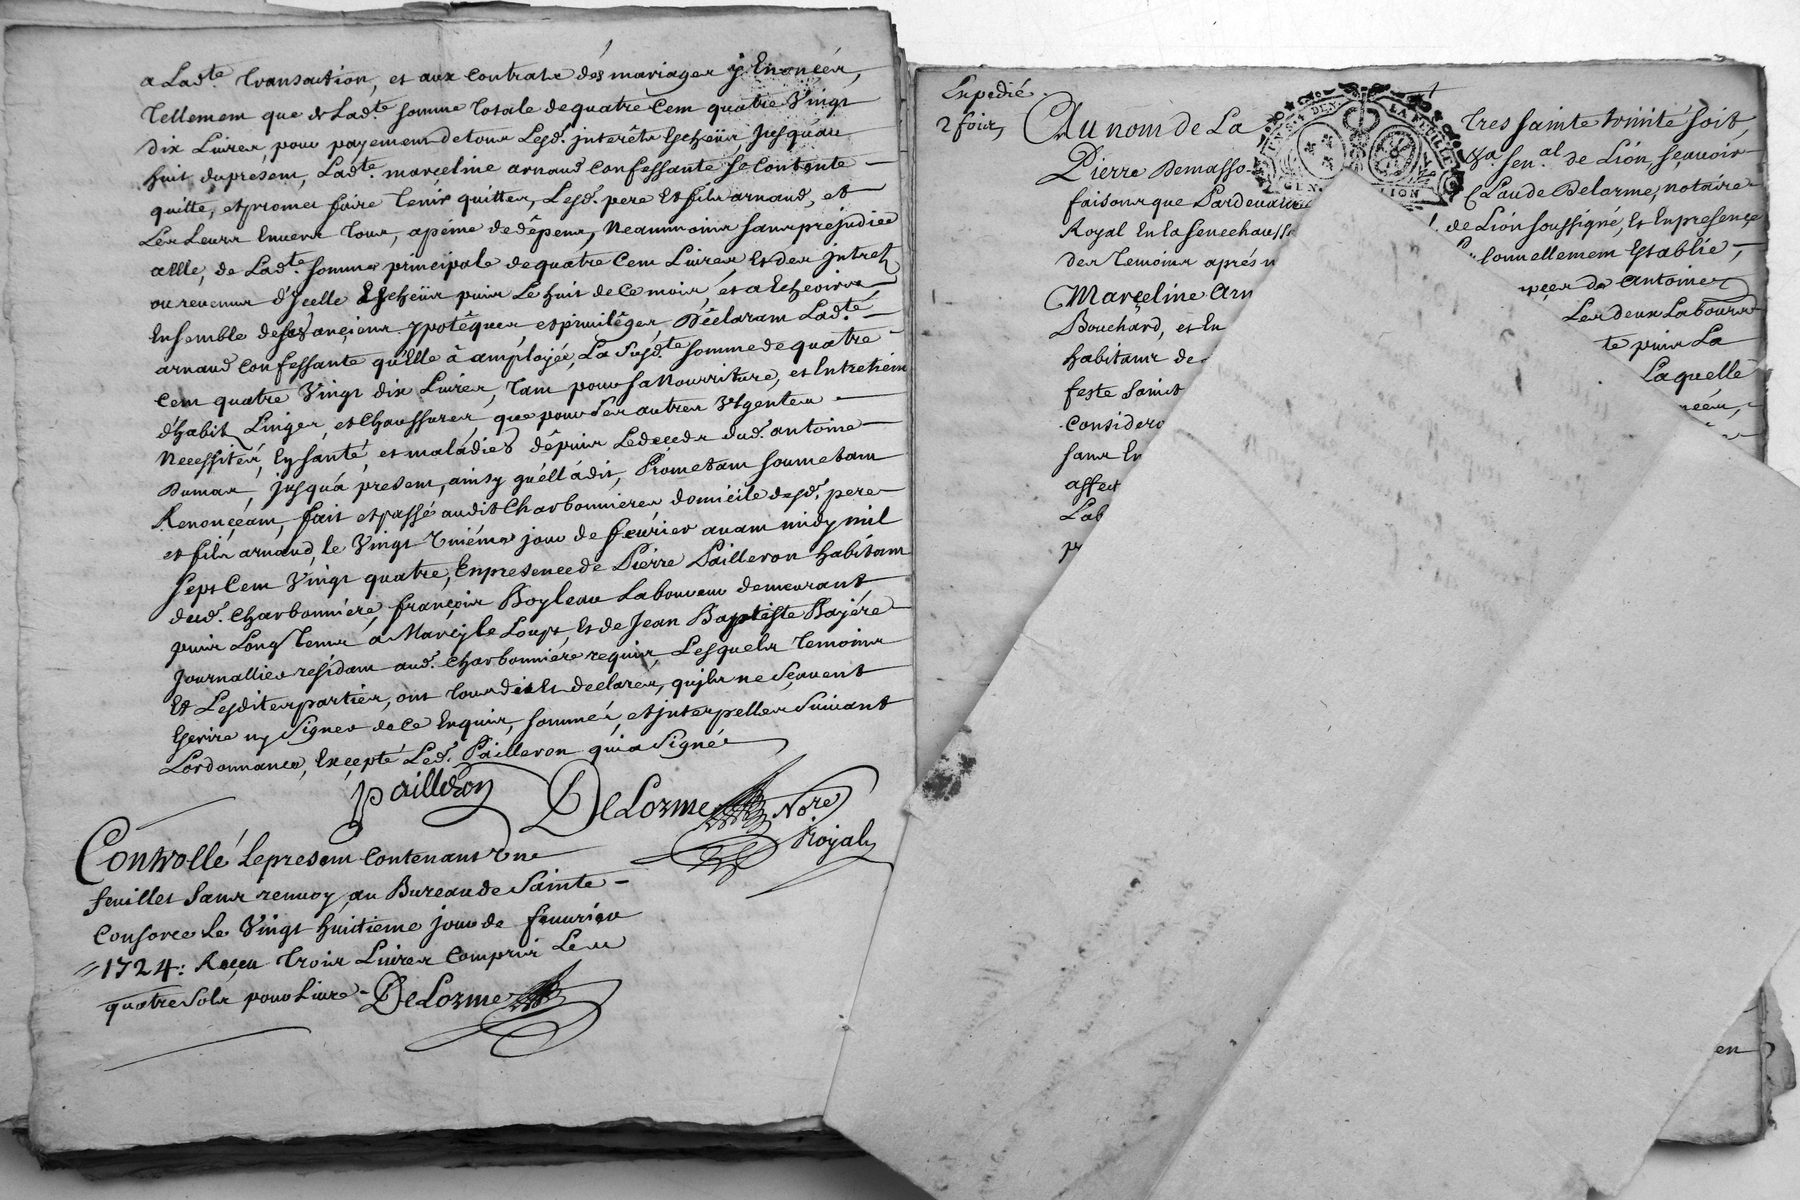 a Lad.te transaction, et aux contrats dés mariages y Enoncés,
Tellement que de Lad.te somme totale de quatre Cent quatre Vingt
dix Livres, pour payement de tous Lesd. interêts Escheüs, Jusqu'au
huit du present, Lad.te marceline arnaud confessante Se Contente
quitte, et promet faire Tenir quittes, Lesd. pere et fils arnaud, et
Les Leurs Envers tous, apéine de dépens, Neammoins sans prejudice
a Elle, de Lad.te somme principale de quatre Cent Livres, et des jntrets
ou revenus d'Jcelle Escheüs puis Le huit de Ce mois, et a Echeoir
Ensemble de Ses anciens ypotêques, et privilêges, Déclarant Lad.te
arnaud confessante qu'Elle à amployée, La Susd.te somme de quatre
Cent quatre Vingt dix Livres, tant pour sa Nourriture, et Entretien
d'habits Linges, et Chaussures, que pour Ses autres Urgentes
Necessités, En santé, et maladies dépuis Le deceds dud. antoine
Dumas, jusqu'a present, ainsy qu'éll'a dit, Prometant soumetant
Renonçéant, fait et passé audit Charbonnieres domicile desd. pere
et fils arnaud, le Vingt Uniéme jour de feuvrier avant midy mil
Sept Cent Vingt quatre, En presence de Pierre Pailleron habitant
dud. Charbonniére, françois Boyleau Laboureur demeurant
puis Long Tems a Marcy le Loup, Et de Jean Baptiste Bajére
Journallier residant aud. Charbonniére requis, Lesquels Temoins
Et Lesdites parties, ont tous dit Et declarer, qu'jls ne Sçavent
Escrire ny Signer de Ce Enquis, sommés, et jnterpellés Suivant
Lordonnance, Excepté Led. Pailleron qui a Signé
pailleron DeLorme No.re
Royal
Controllé Le present Contenant Une
feuillet Sans renvoy au Bureau de Sainte
Consorce Le Vingt huitieme jour de feuvrier
1724: Reçeu trois Livres Compris Les
quatre Sols pour Livre DeLorme
Expedié
2 fois
Au nom de La Tres sainte trinité soit,
Pierre Demasso Sen.al de Lion, sçavoir
faisons que Pardevant Claude Delorme, notaire
Royal En la Senechaussé de Lion soussigné, Et En presençe
des Temoins aprés n sonnellement Establie,
Marçeline Arn de Antoine
Bouchard, et En Les deux Labour
habitans de te puis La
feste Saint Laquelle
considera
sans En
affect
Lad
en